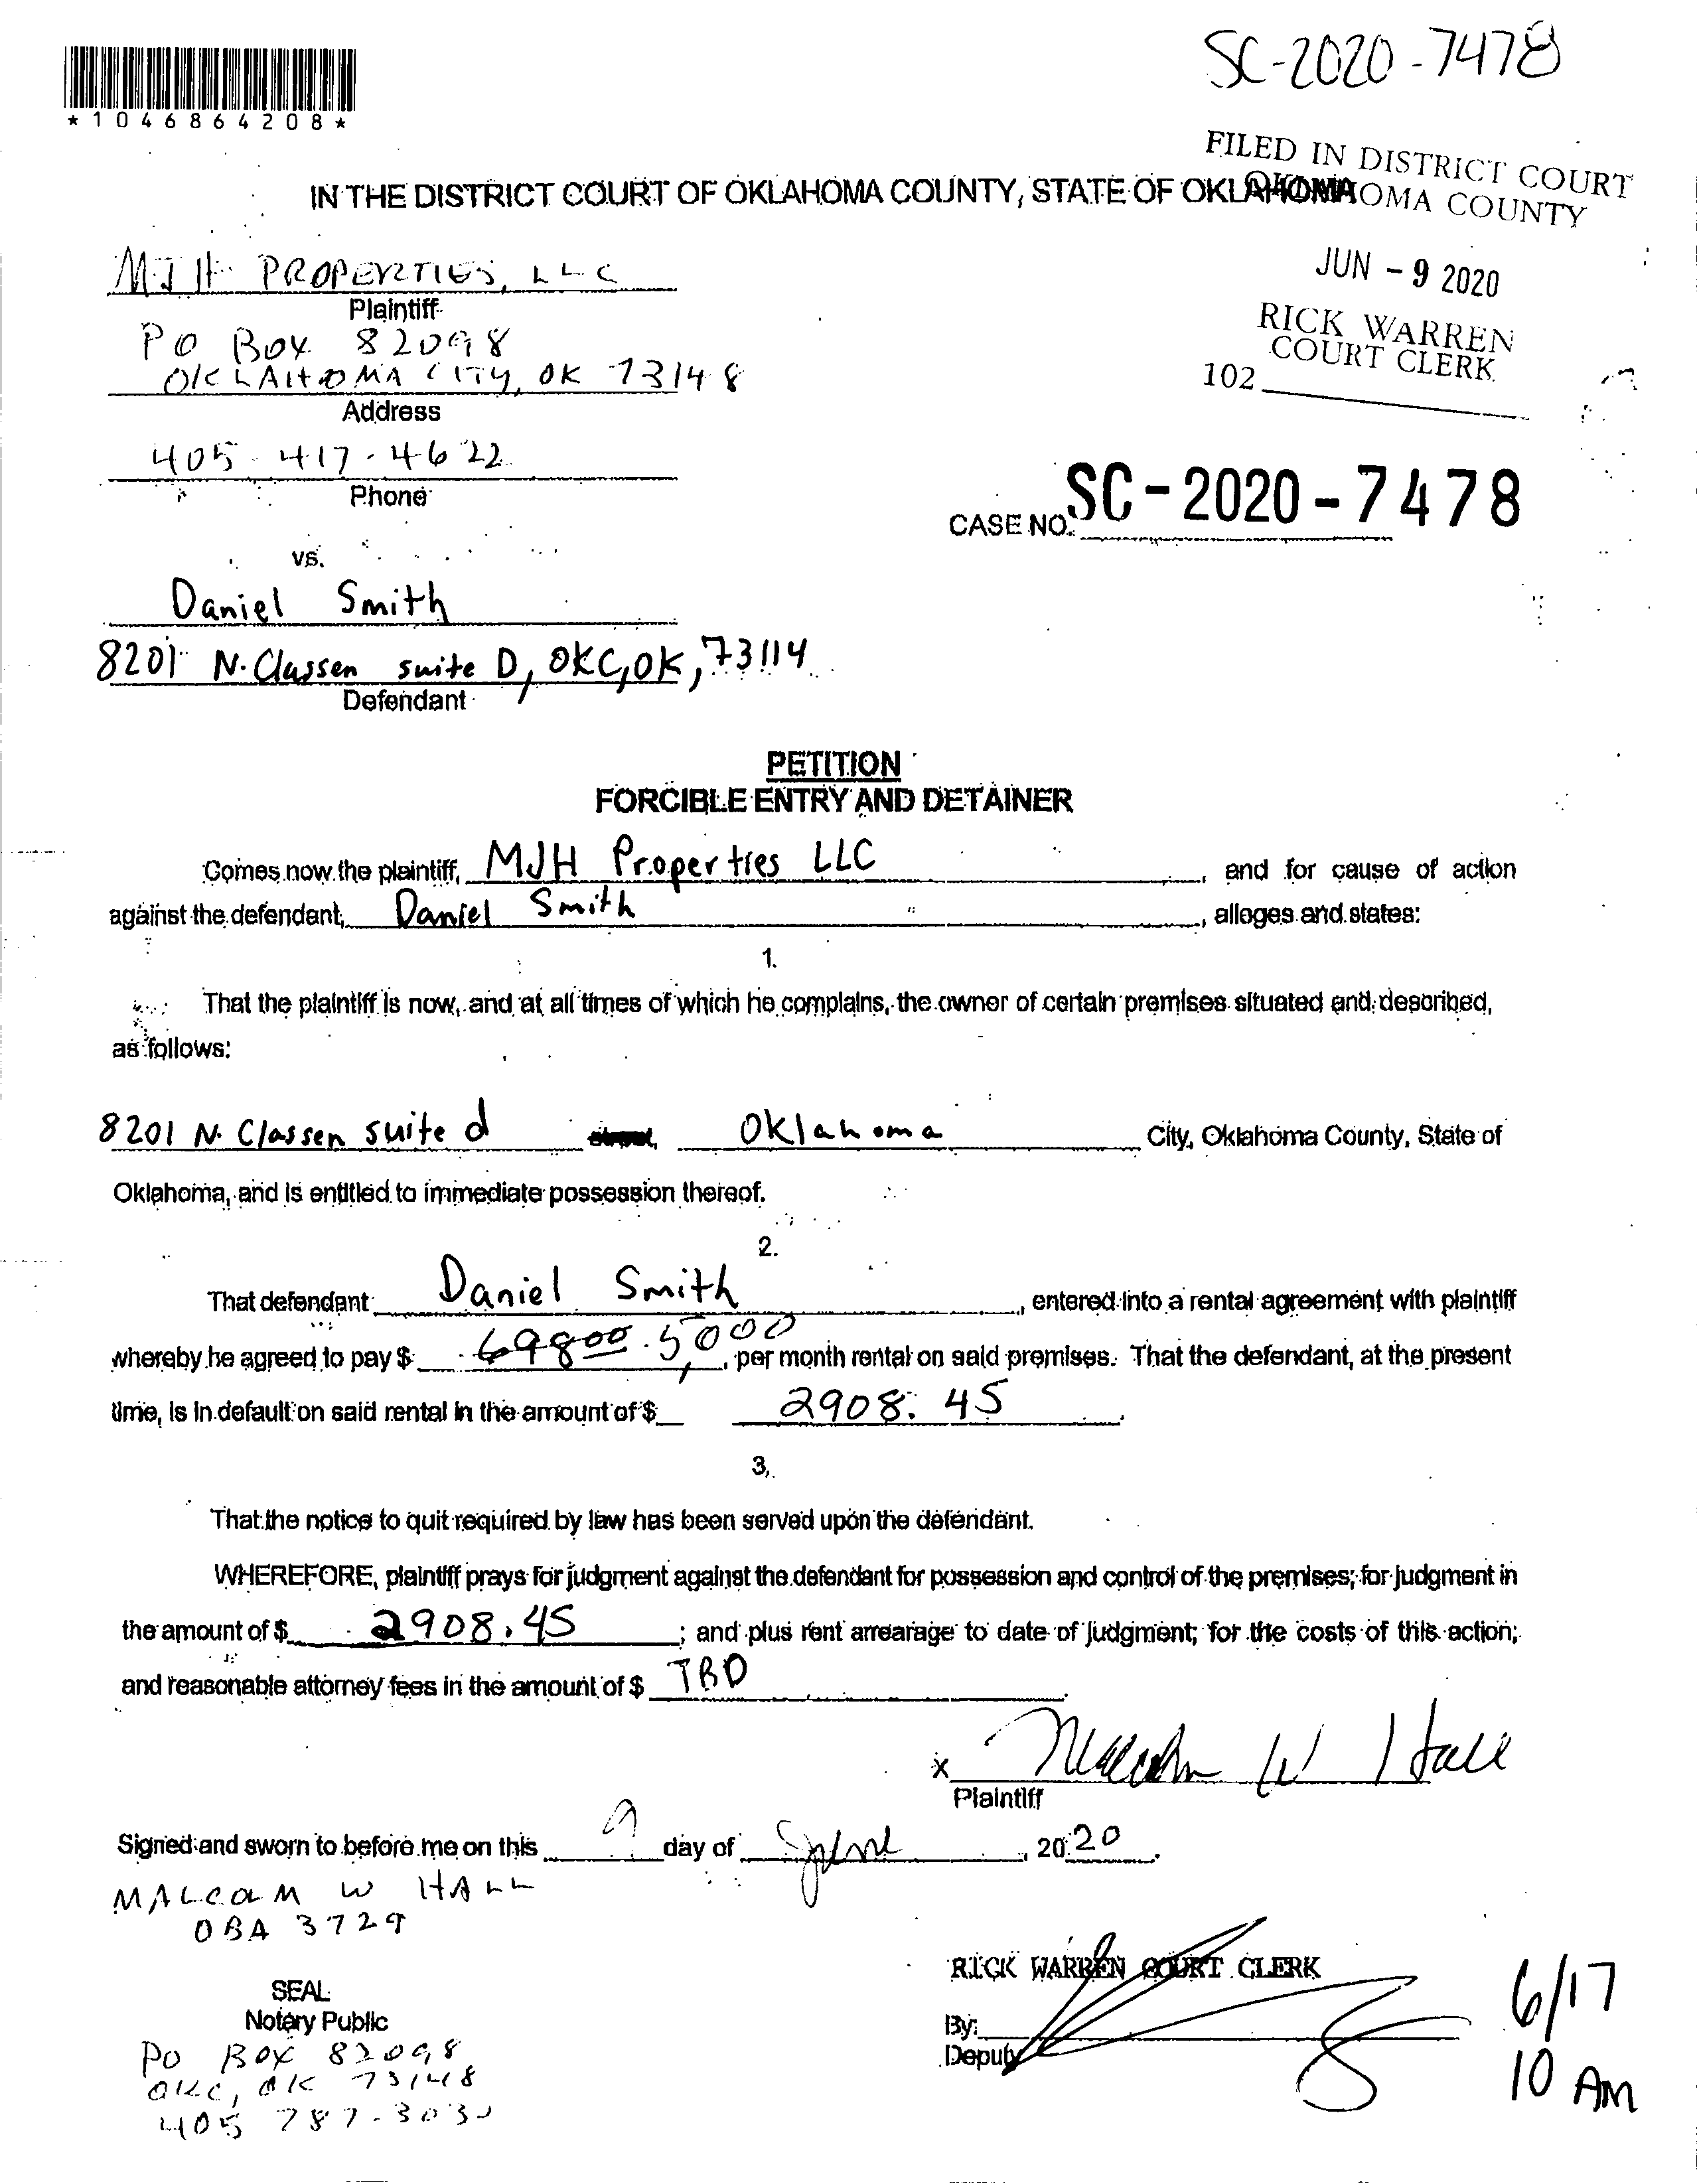 SC-2020-7478
*1046864208*
FILED IN DISTRICT COURT
OKLAHOMA COUNTY
IN THE DISTRICT COURT OF OKLAHOMA COUNTY, STATE OF OKLAHOMA
JUN - 9 2020
RICK WARREN
COURT CLERK
102
MJH PROPERTIES, LLC
Plaintiff
PO Box 82098
OKLAHOMA CITY, OK 73148
Address
405-417-4622
Phone
CASE NO. SC-2020-7478
vs.
Daniel Smith
8201 N. Classen suite D, OKC, OK, 73114
Defendant
PETITION
FORCIBLE ENTRY AND DETAINER
Comes now the plaintiff, MJH Properties LLC, and for cause of action
against the defendant, Daniel Smith, alleges and states:
1.
That the plaintiff is now, and at all times of which he complains, the owner of certain premises situated and described,
as follows:
8201 N. Classen suite d street, Oklahoma City, Oklahoma County, State of
Oklahoma, and is entitled to immediate possession thereof.
2.
That defendant Daniel Smith, entered into a rental agreement with plaintiff
whereby he agreed to pay $, per month rental on said premises. That the defendant, at the present
time, is in default on said rental in the amount of $ 2908.45.
3.
That the notice to quit required by law has been served upon the defendant.
WHEREFORE, plaintiff prays for judgment against the defendant for possession and control of the premises; for judgment in
the amount of $ 2908.45; and plus rent arrearage to date of judgment; for the costs of this action;
and reasonable attorney fees in the amount of $ TBD.
x Malcolm W Hall
Plaintiff
Signed and sworn to before me on this 9 day of June, 2020.
MALCOLM W HALL
OBA 3729
RICK WARREN COURT CLERK
SEAL
Notary Public
By:
Deputy
PO Box 82098
OKC, OK 73148
405 787-3030
6/17
10 AM